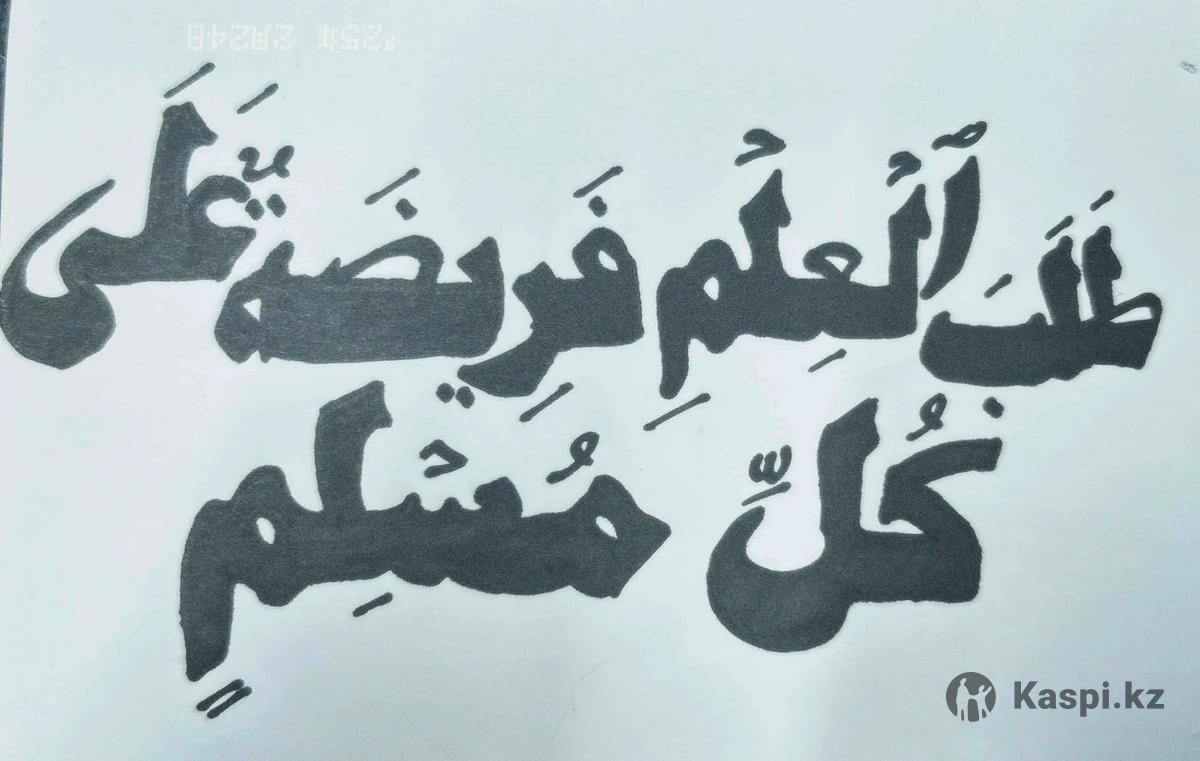 طَلَبَ ٱلْعِلْمِ فَرِيضَةٌ عَلَى
كُلِّ مُسْلِمٍ
Kaspi.kz